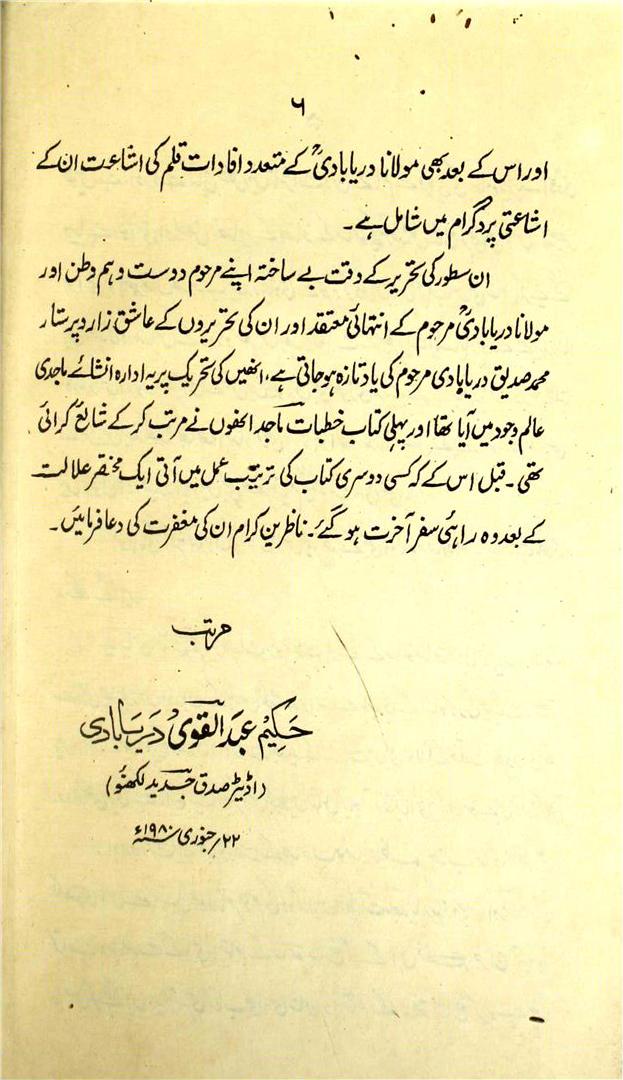 ۶
اور اس کے بعد بھی مولانا دریابادیؒ کے متعدد افادات قلم کی اشاعت ان کے
اشاعتی پروگرام میں شامل ہے۔
ان سطور کی تحریر کے وقت بے ساختہ اپنے مرحوم دوست و ہم وطن اور
مولانا دریابادیؒ مرحوم کے انتہائی معتقد اور ان کی تحریروں کے عاشق زار و پرستار
محمد صدیق دریابادی مرحوم کی یاد تازہ ہو جاتی ہے، انھیں کی تحریک پر یہ ادارہ انشائے ماجدی
عالم وجود میں آیا تھا اور پہلی کتاب خطبات ماجد انھوں نے مرتب کر کے شائع کرائی
تھی۔ قبل اس کے کہ کسی دوسری کتاب کی ترتیب عمل میں آتی ایک مختصر علالت
کے بعد وہ راہئی سفر آخرت ہو گئے۔ ناظرین کرام ان کی مغفرت کی دعا فرمائیں۔
مرتب
حکیم عبد القوی دریابادی
(اڈیٹر صدق جدید لکھنؤ)
۲۲/ جنوری ۱۹۸۰ء